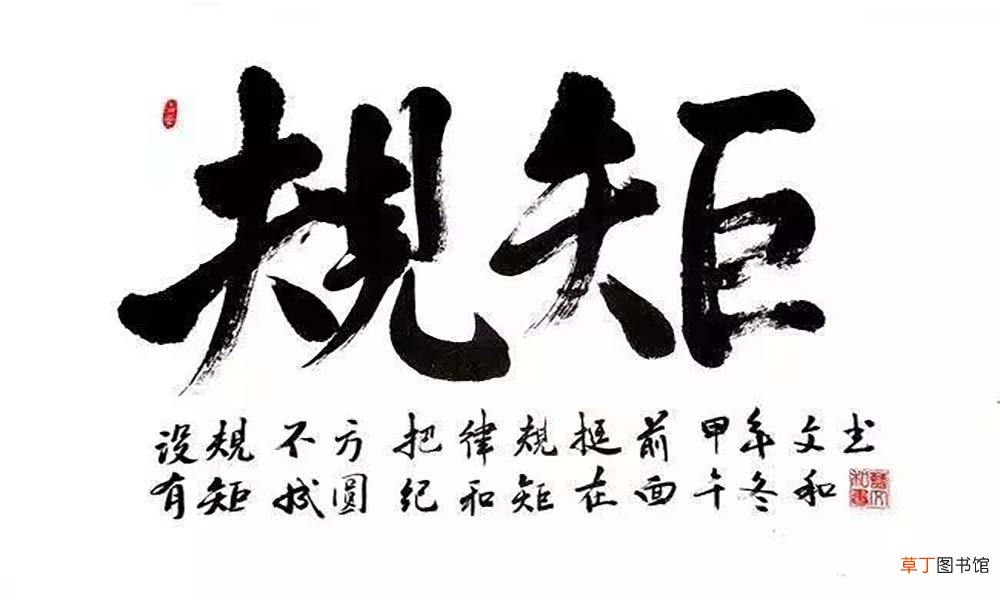 規矩
没有
規矩
不成
方圓
把纪
律和
規矩
挺在
前面
甲午
年冬
文和
书
草丁图书馆